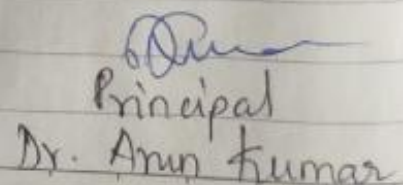 Principal
Dr. Arun Kumar